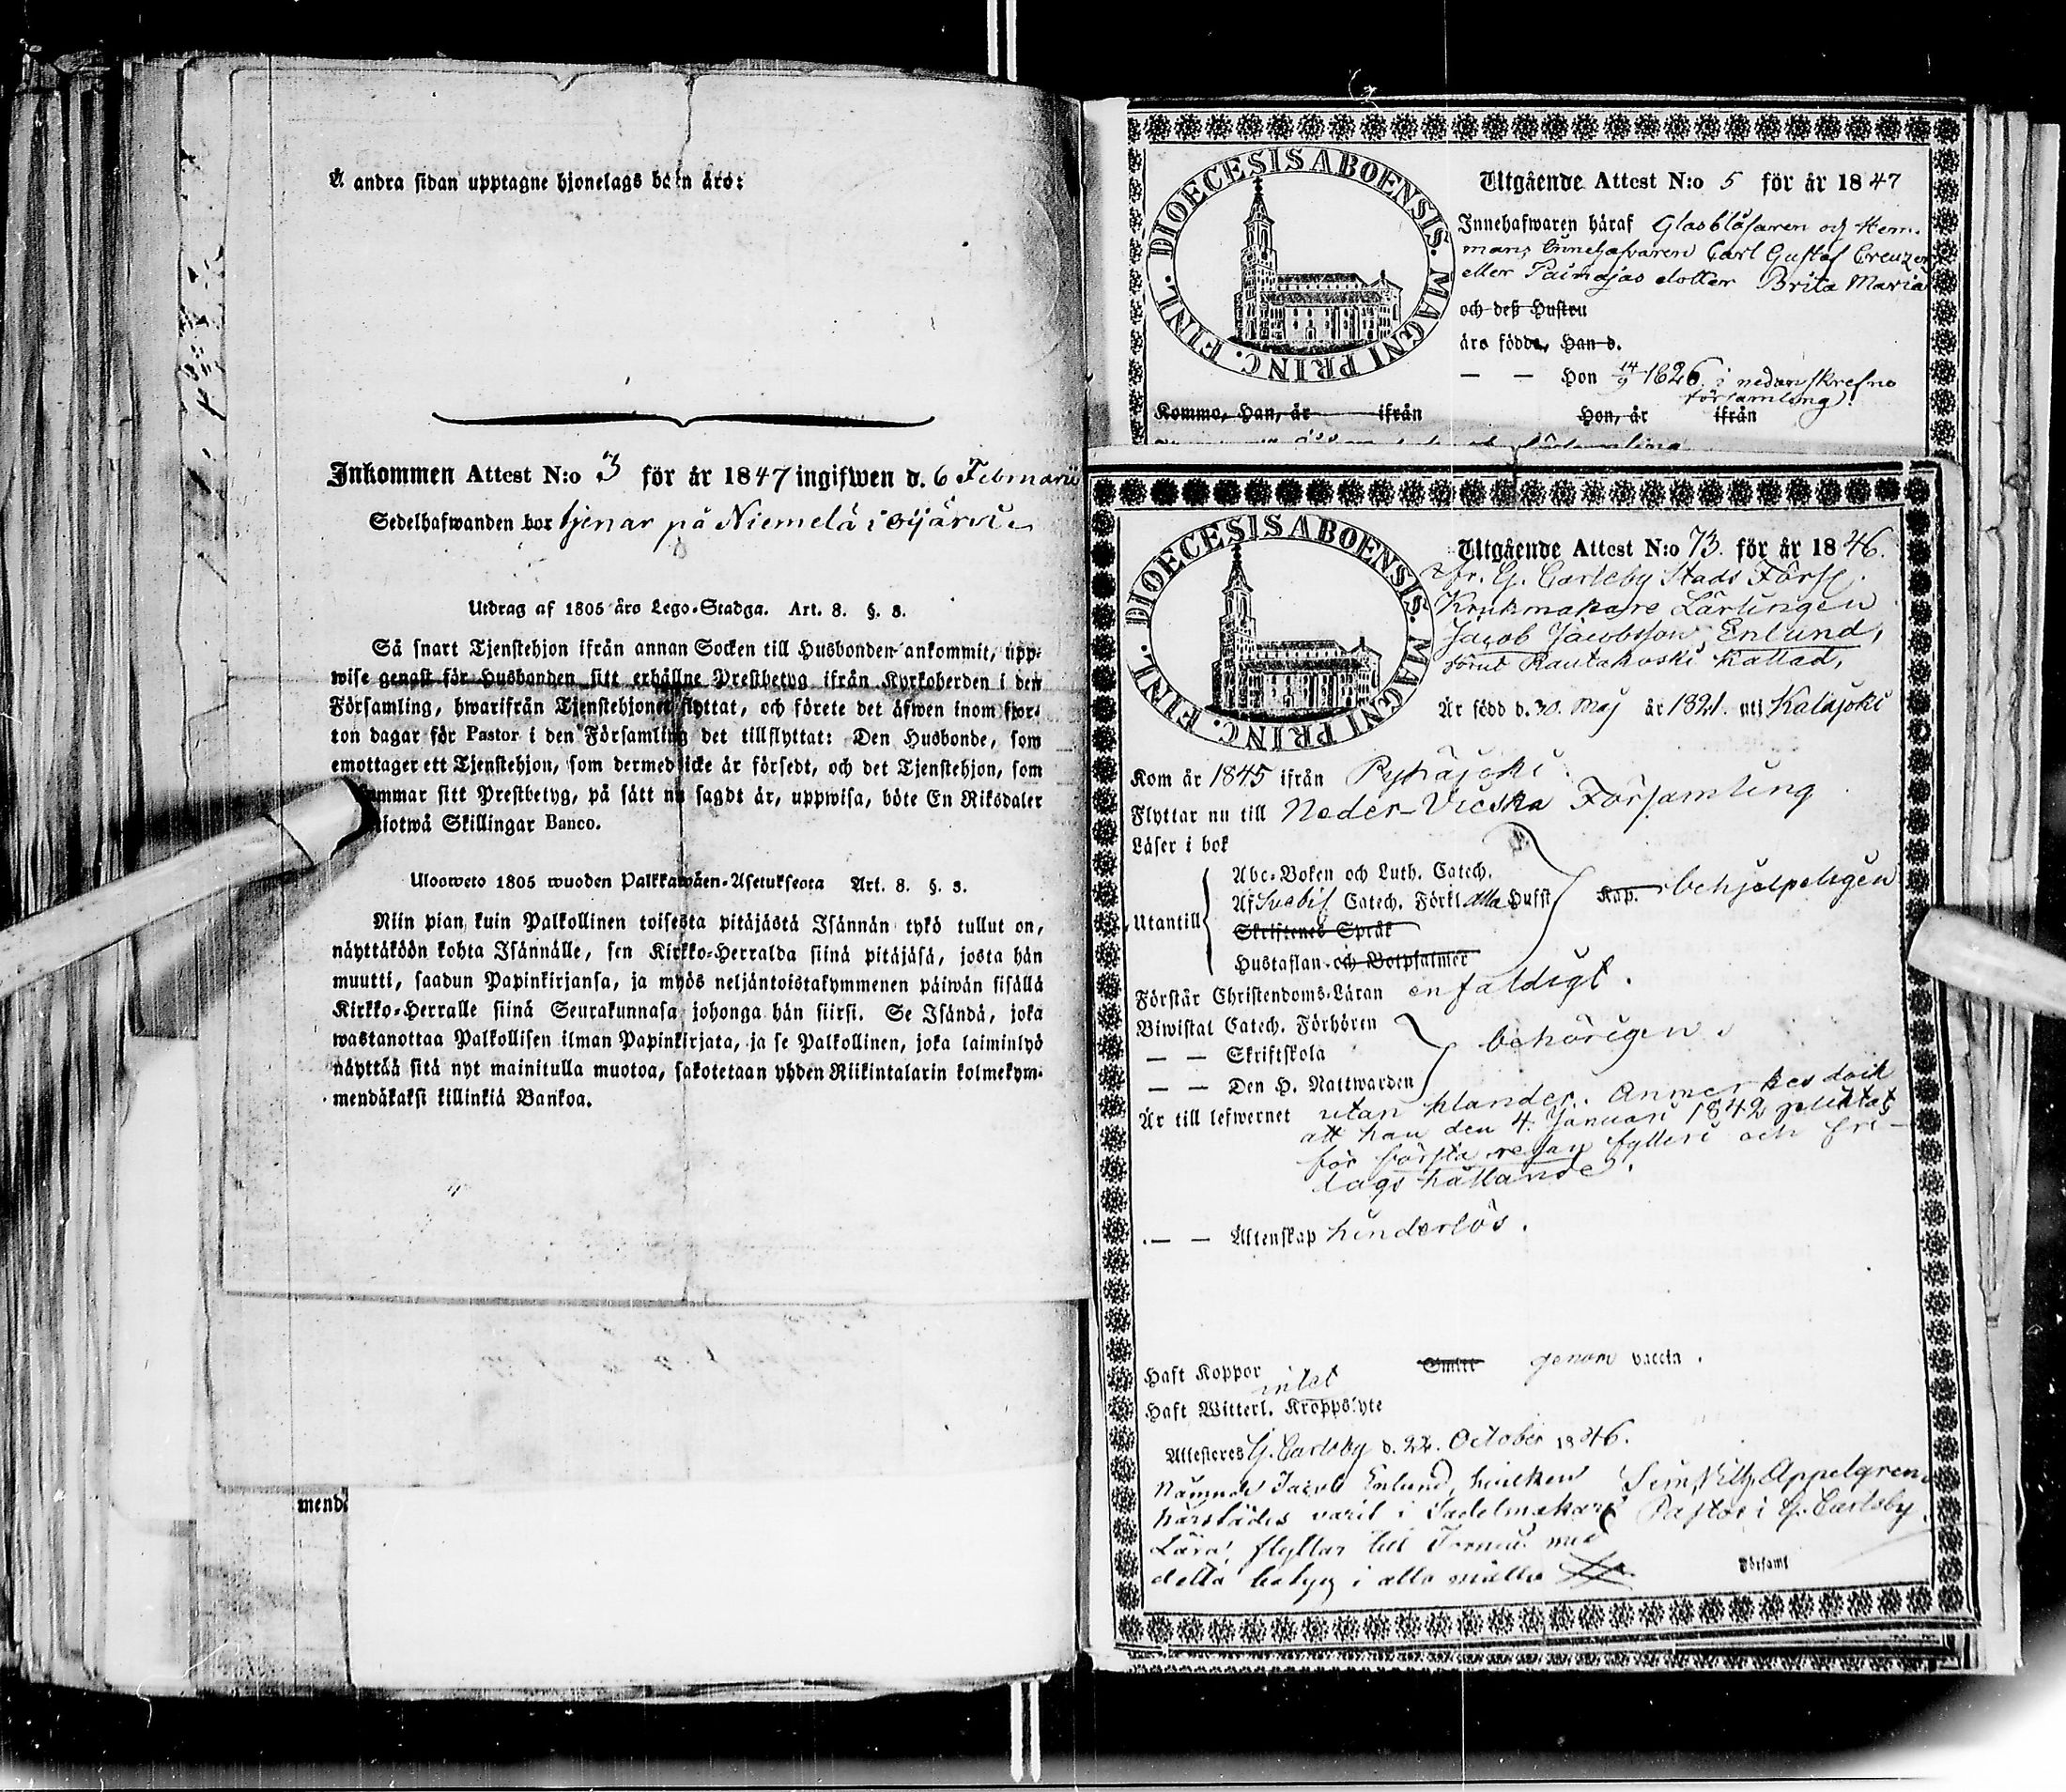 Å andra sidan upptagne hjonelags barn äro:
Inkommen Attest N:o 3 för år 1847 ingifwen d. 6 Februarii
Sedelhafwanden bor tjenar på Niemelä i Oijärvi
Utdrag af 1805 års Lego-Stadga. Art. 8. §. 8.
Så snart Tjenstehjon ifrån annan Socken till Husbonden ankommit, upp-
wise genast för Husbonden sitt erhållne Prestbetyg ifrån Kyrkoherden i den
Församling, hwarifrån Tjenstehjonet flyttat, och förete det äfwen inom fjor-
ton dagar för Pastor i den Församling det tillflyttat: Den Husbonde, som
emottager ett Tjenstehjon, som dermed icke är försedt, och det Tjenstehjon, som
ummar sitt Prestbetyg, på sätt nu sagdt är, uppwisa, böte En Riksdaler
tiotwå Skillingar Banco.
Ulosweto 1805 wuoden Palkkawäen-Asetuksesta Art. 8. §. 8.
Niin pian kuin Palkollinen toisesta pitäjästä Isännän tykö tullut on,
näyttäköön kohta Isännälle, sen Kirkko-Herralda siinä pitäjäsä, josta hän
muutti, saadun Papinkirjansa, ja myös neljäntoistakymmenen päiwän sisällä
Kirkko-Herralle siinä Seurakunnasa johonga hän siirsi. Se Isändä, joka
wastanottaa Palkollisen ilman Papinkirjata, ja se Palkollinen, joka laiminlyö
näyttää sitä nyt mainitulla muotoa, sakotetaan yhden Riikintalarin kolmekym-
mendäkaksi killinkiä Bankoa.
mendä
DIOECESIS ABOENSIS. MAGNI PRINC. FINL.
Utgående Attest N:o 5 för år 1847
Innehafwaren häraf Glasblåsaren och Hem-
mans innehafvaren Carl Gustaf Creuzen
eller dotter Brita Maria
och deß Hustru
äro födde, Han d.
— — Hon 14/9 1826. i nedanskrefne
församling.
Komme, Han, år ifrån Hon, år ifrån
DIOECESIS ABOENSIS. MAGNI PRINC. FINL.
Utgående Attest N:o 73. för år 1846.
fr. G. Carleby Stads Förs.
Krukmakare Lärlingen
Jacob Jacobsson Enlund,
förut Rautakoski kallad,
Är född d. 30. Maj år 1821. uti Kalajoki
Kom år 1845 ifrån Pyhäjoki
Flyttar nu till Neder-Vieska Församling
Läser i bok
Abc-Boken och Luth. Catech.
Utantill Af Svebil. Catech. Förkl. alla Hufst Kap. behjelpeligen
Skriftenes Språk
Hustaflan och Botpsalmer
Förstår Christendoms-Läran enfaldigt.
Biwistat Catech. Förhören
— — Skriftskola behörigen.
— — Den H. Nattwarden
Är till lefwernet utan klander. Anmerkes dock
att han den 4. Januari 1842 pliktat
för första resan fylleri och
hållande.
— — Äktenskap hinderlös.
Haft Koppor Smitt genom vaccin.
intet
Haft Witterl. Kroppslyte
Attesteres G. Carleby d. 22. October 1846.
Nämnde Jacob Enlund, hvilken Appelgren
härstädes varit i Sadelmakare Pastor i G. Carleby.
Lära, flyttar till med
detta betyg i allo Församl